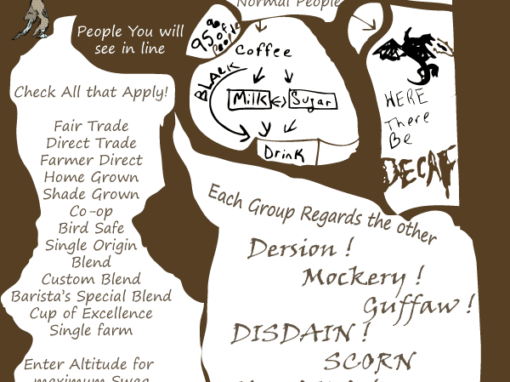 People You will
see in line
Check All that Apply!
Fair Trade
Direct Trade
Farmer Direct
Home Grown
Shade Grown
Co-op
Bird Safe
Single Origin
Blend
Custom Blend
Barista's Special Blend
Cup of Excellence
Single farm
Enter Altitude for
maximum Swag
Normal People
95% of People
Coffee
BLACK
Milk
Sugar
Drink
HERE
There
Be
DECAF
Each Group Regards the other
Dersion !
Mockery !
Guffaw !
DISDAIN !
SCORN